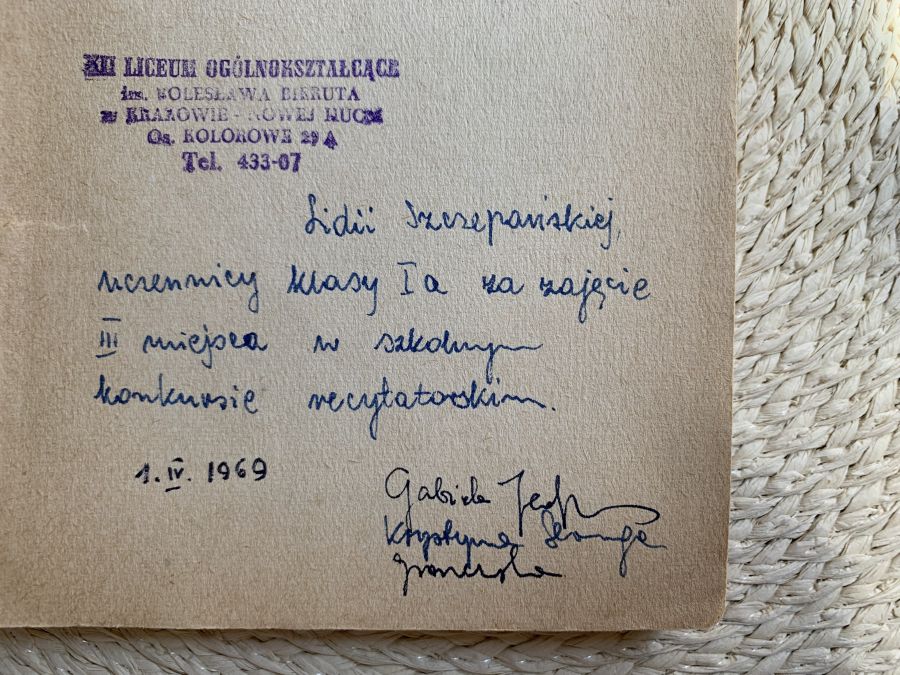 XII LICEUM OGÓLNOKSZTAŁCĄCE
im. BOLESŁAWA BIERUTA
w KRAKOWIE - NOWEJ HUCIE
Os. KOLOROWE 29 A
Tel. 433-07
Lidii Szczepańskiej,
uczennicy klasy I a za zajęcie
III miejsca w szkolnym
konkursie recytatorskim.
1. IV. 1969
Gabriela
Krystyna